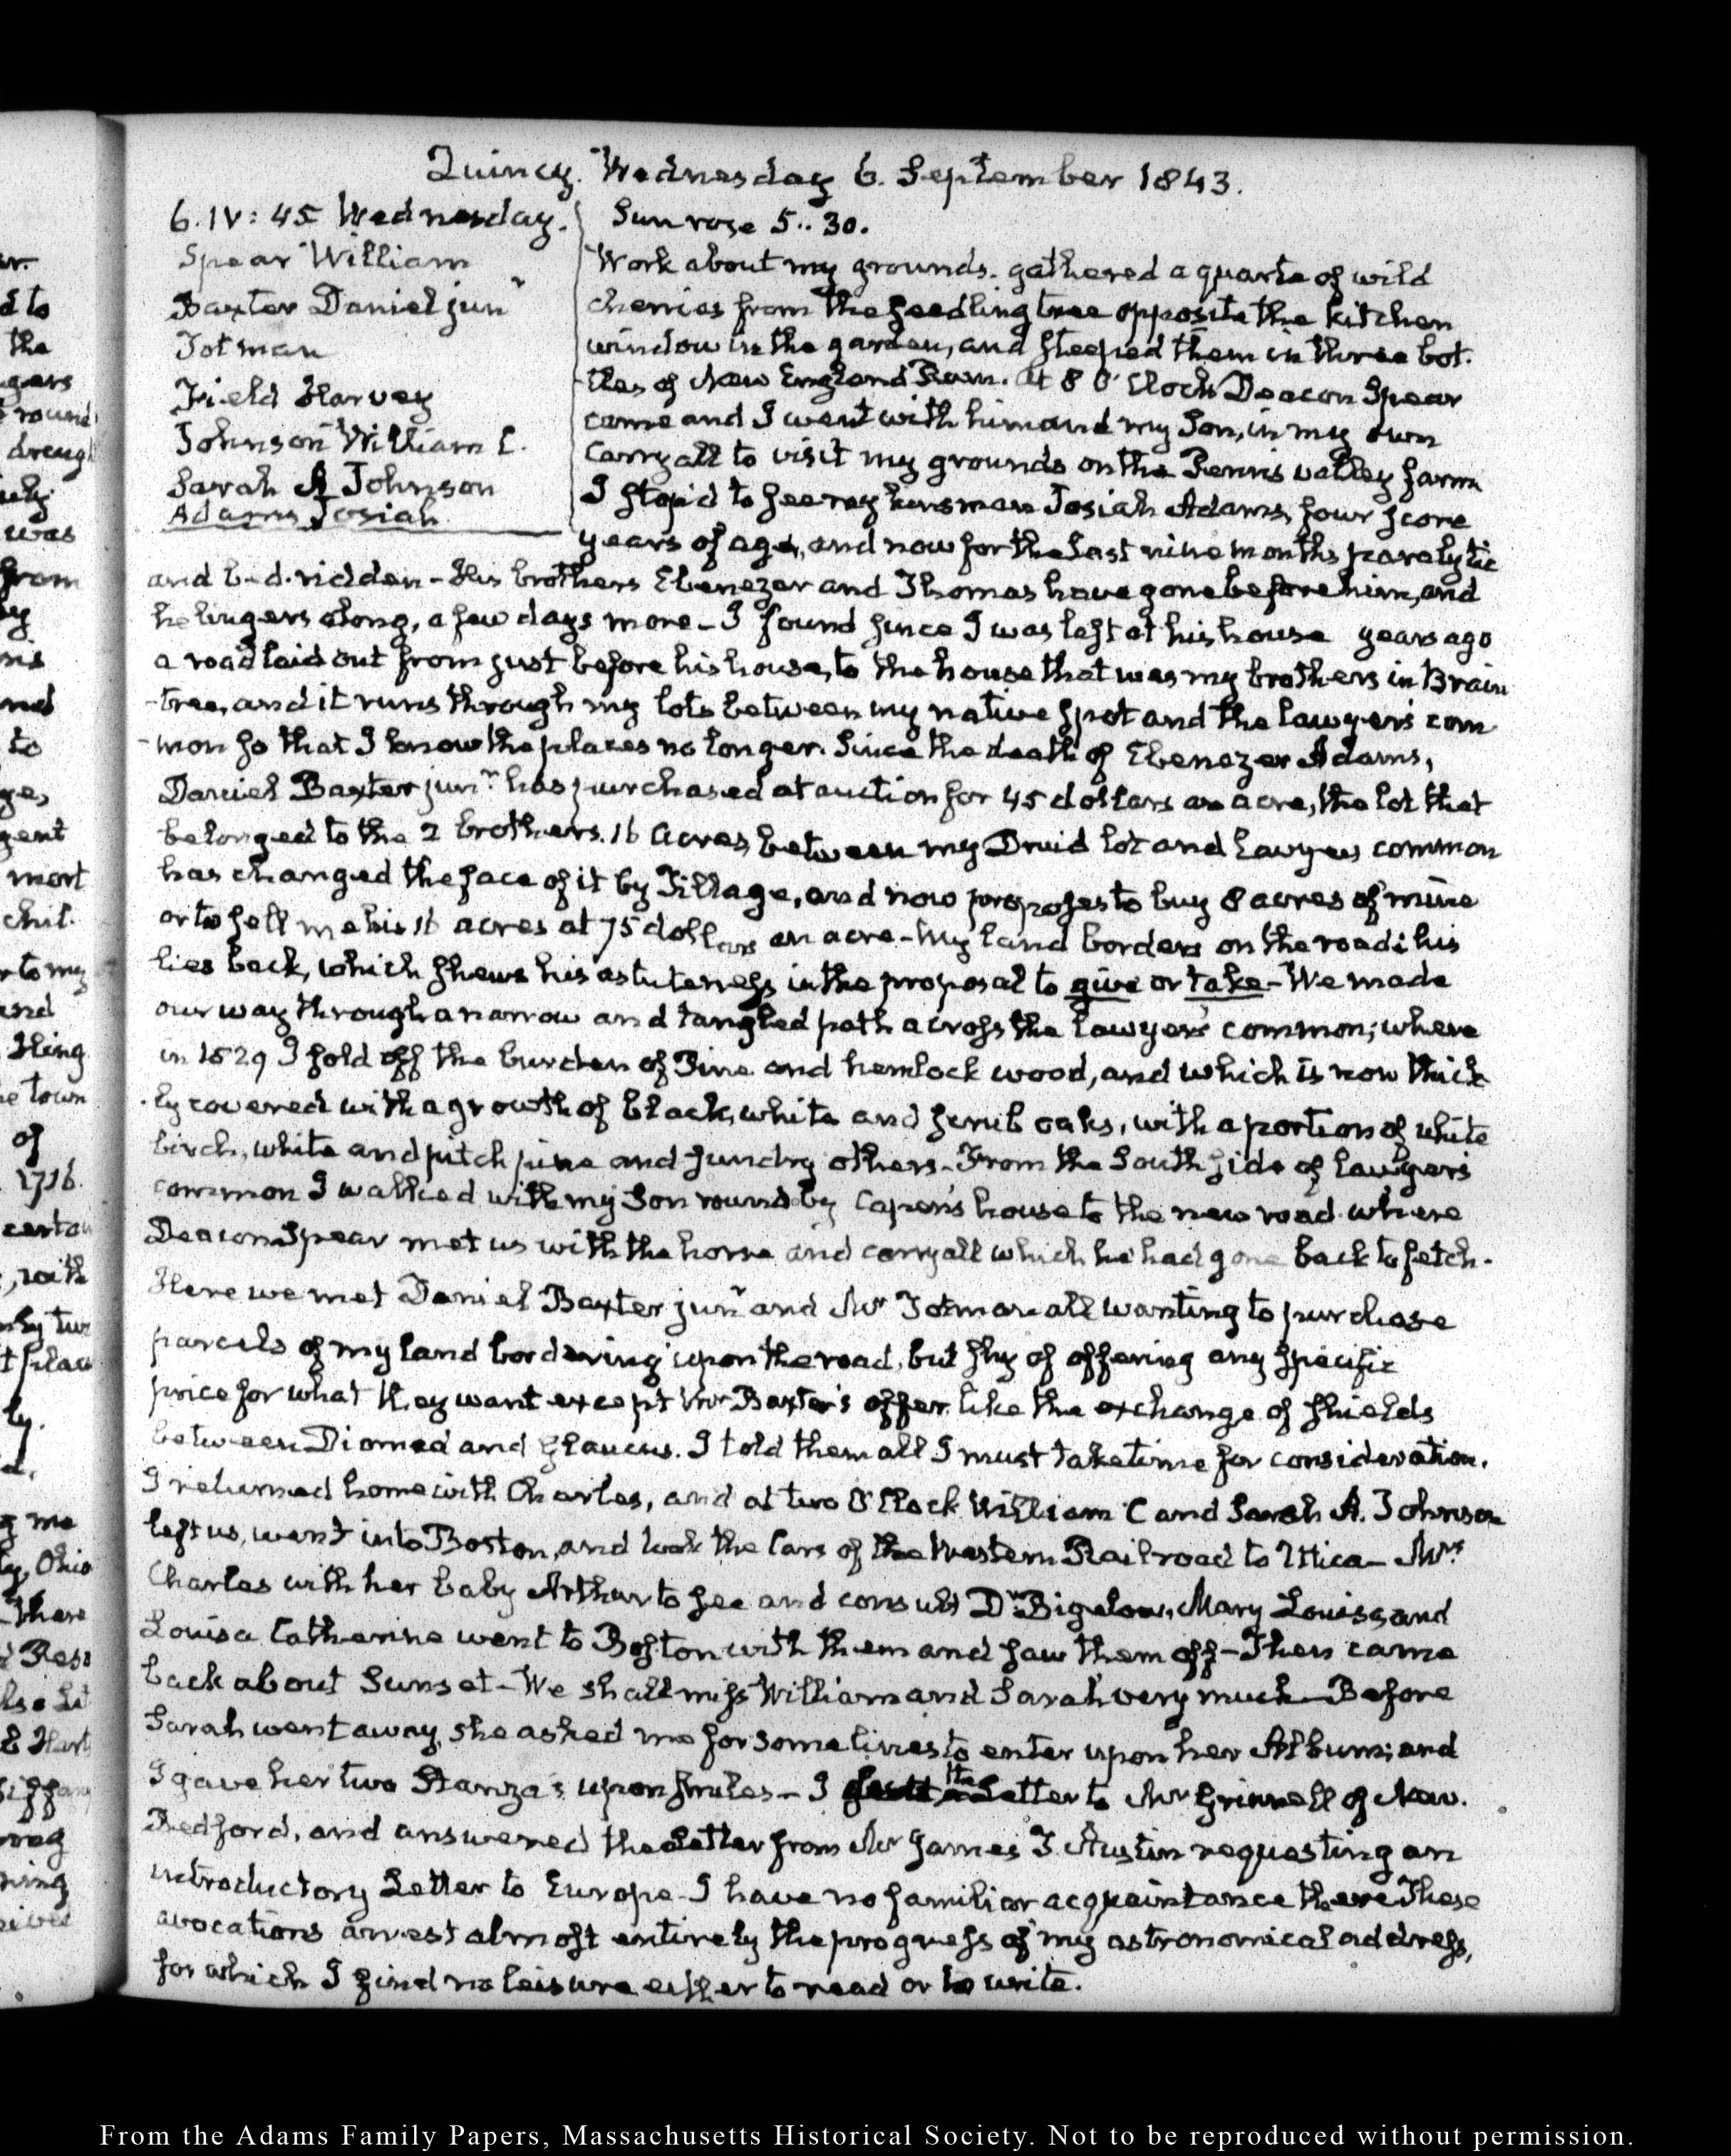 Quincy. Wednesday 6. September 1843.
6. IV: 45 Wednesday.
Spear William
Baxter Daniel junr
Totman
Field Harvey
Johnson William C.
Sarah A Johnson
Adams Josiah
Sun rose 5..30.
Work about my grounds. gathered a quarte of wild
cherries from the seedling tree opposite the kitchen
window in the garden, and steeped them in three bot-
-tles of New England Rum. At 8 O'Clock Deacon Spear
came and I went with him and my Son, in my own
Carryall to visit my grounds on the Penns valley farm
I stop'd to see my kinsman Josiah Adams, four score
years of age, and now for the last nine months paralytic
and bed-ridden - His brothers Ebenezer and Thomas have gone before him, and
he lingers along, a few days more - I found since I was last at his house years ago
a road laid out from just before his house, to the house that was my brothers in Brain
-tree, and it runs through my lots between my native spot and the lawyers' com
-mon so that I know the places no longer. Since the death of Ebenezer Adams,
Daniel Baxter junr. has purchased at auction for 45 dollars an acre, the lot that
belonged to the 2 brothers. 16 Acres, between my Druid lot and Lawyers common
has changed the face of it by Tillage, and now proposes to buy 8 acres of mine
or to sell me his 16 acres at 75 dollars an acre - My land borders on the road: his
lies back, which shews his astuteness in the proposal to give or take - We made
our way through a narrow and tangled path across the lawyers' common; where
in 1829 I sold off the burden of Pine and hemlock wood, and which is now thick
-ly covered with a growth of black, white and scrub oaks, with a portion of white
birch, white and pitch pine and sundry others. From the South side of Lawyers
common I walked with my Son round by Capen's house to the new road where
Deacon Spear met us with the horse and carryall which he had gone back to fetch.
Here we met Daniel Baxter junr and Mr Totman all wanting to purchase
parcels of my land bordering upon the road, but shy of offering any specific
price for what they want except Mr Baxter's offer. like the exchange of shields
between Diomed and Glaucus. I told them all I must take time for consideration.
I returned home with Charles, and at two O'Clock William C and Sarah A. Johnson
left us, went into Boston, and took the Cars of the Western Railroad to Utica - Mrs
Charles with her baby Arthur to see and consult Dr Bigelow, Mary Louisa, and
Louisa Catherine went to Boston with them and saw them off - Then came
back about Sunset - We shall miss William and Sarah very much - Before
Sarah went away, she asked me for some lines to enter upon her Album; and
I gave her two Stanza's upon smiles - I the Letter to Mr Grinnell of New.
Bedford, and answered the Letter from Mr James T. Austin requesting an
introductory Letter to Europe - I have no familiar acquaintance there These
avocations arrest almost entirely the progress of my astronomical address,
for which I find no leisure either to read or to write.
From the Adams Family Papers, Massachusetts Historical Society. Not to be reproduced without permission.